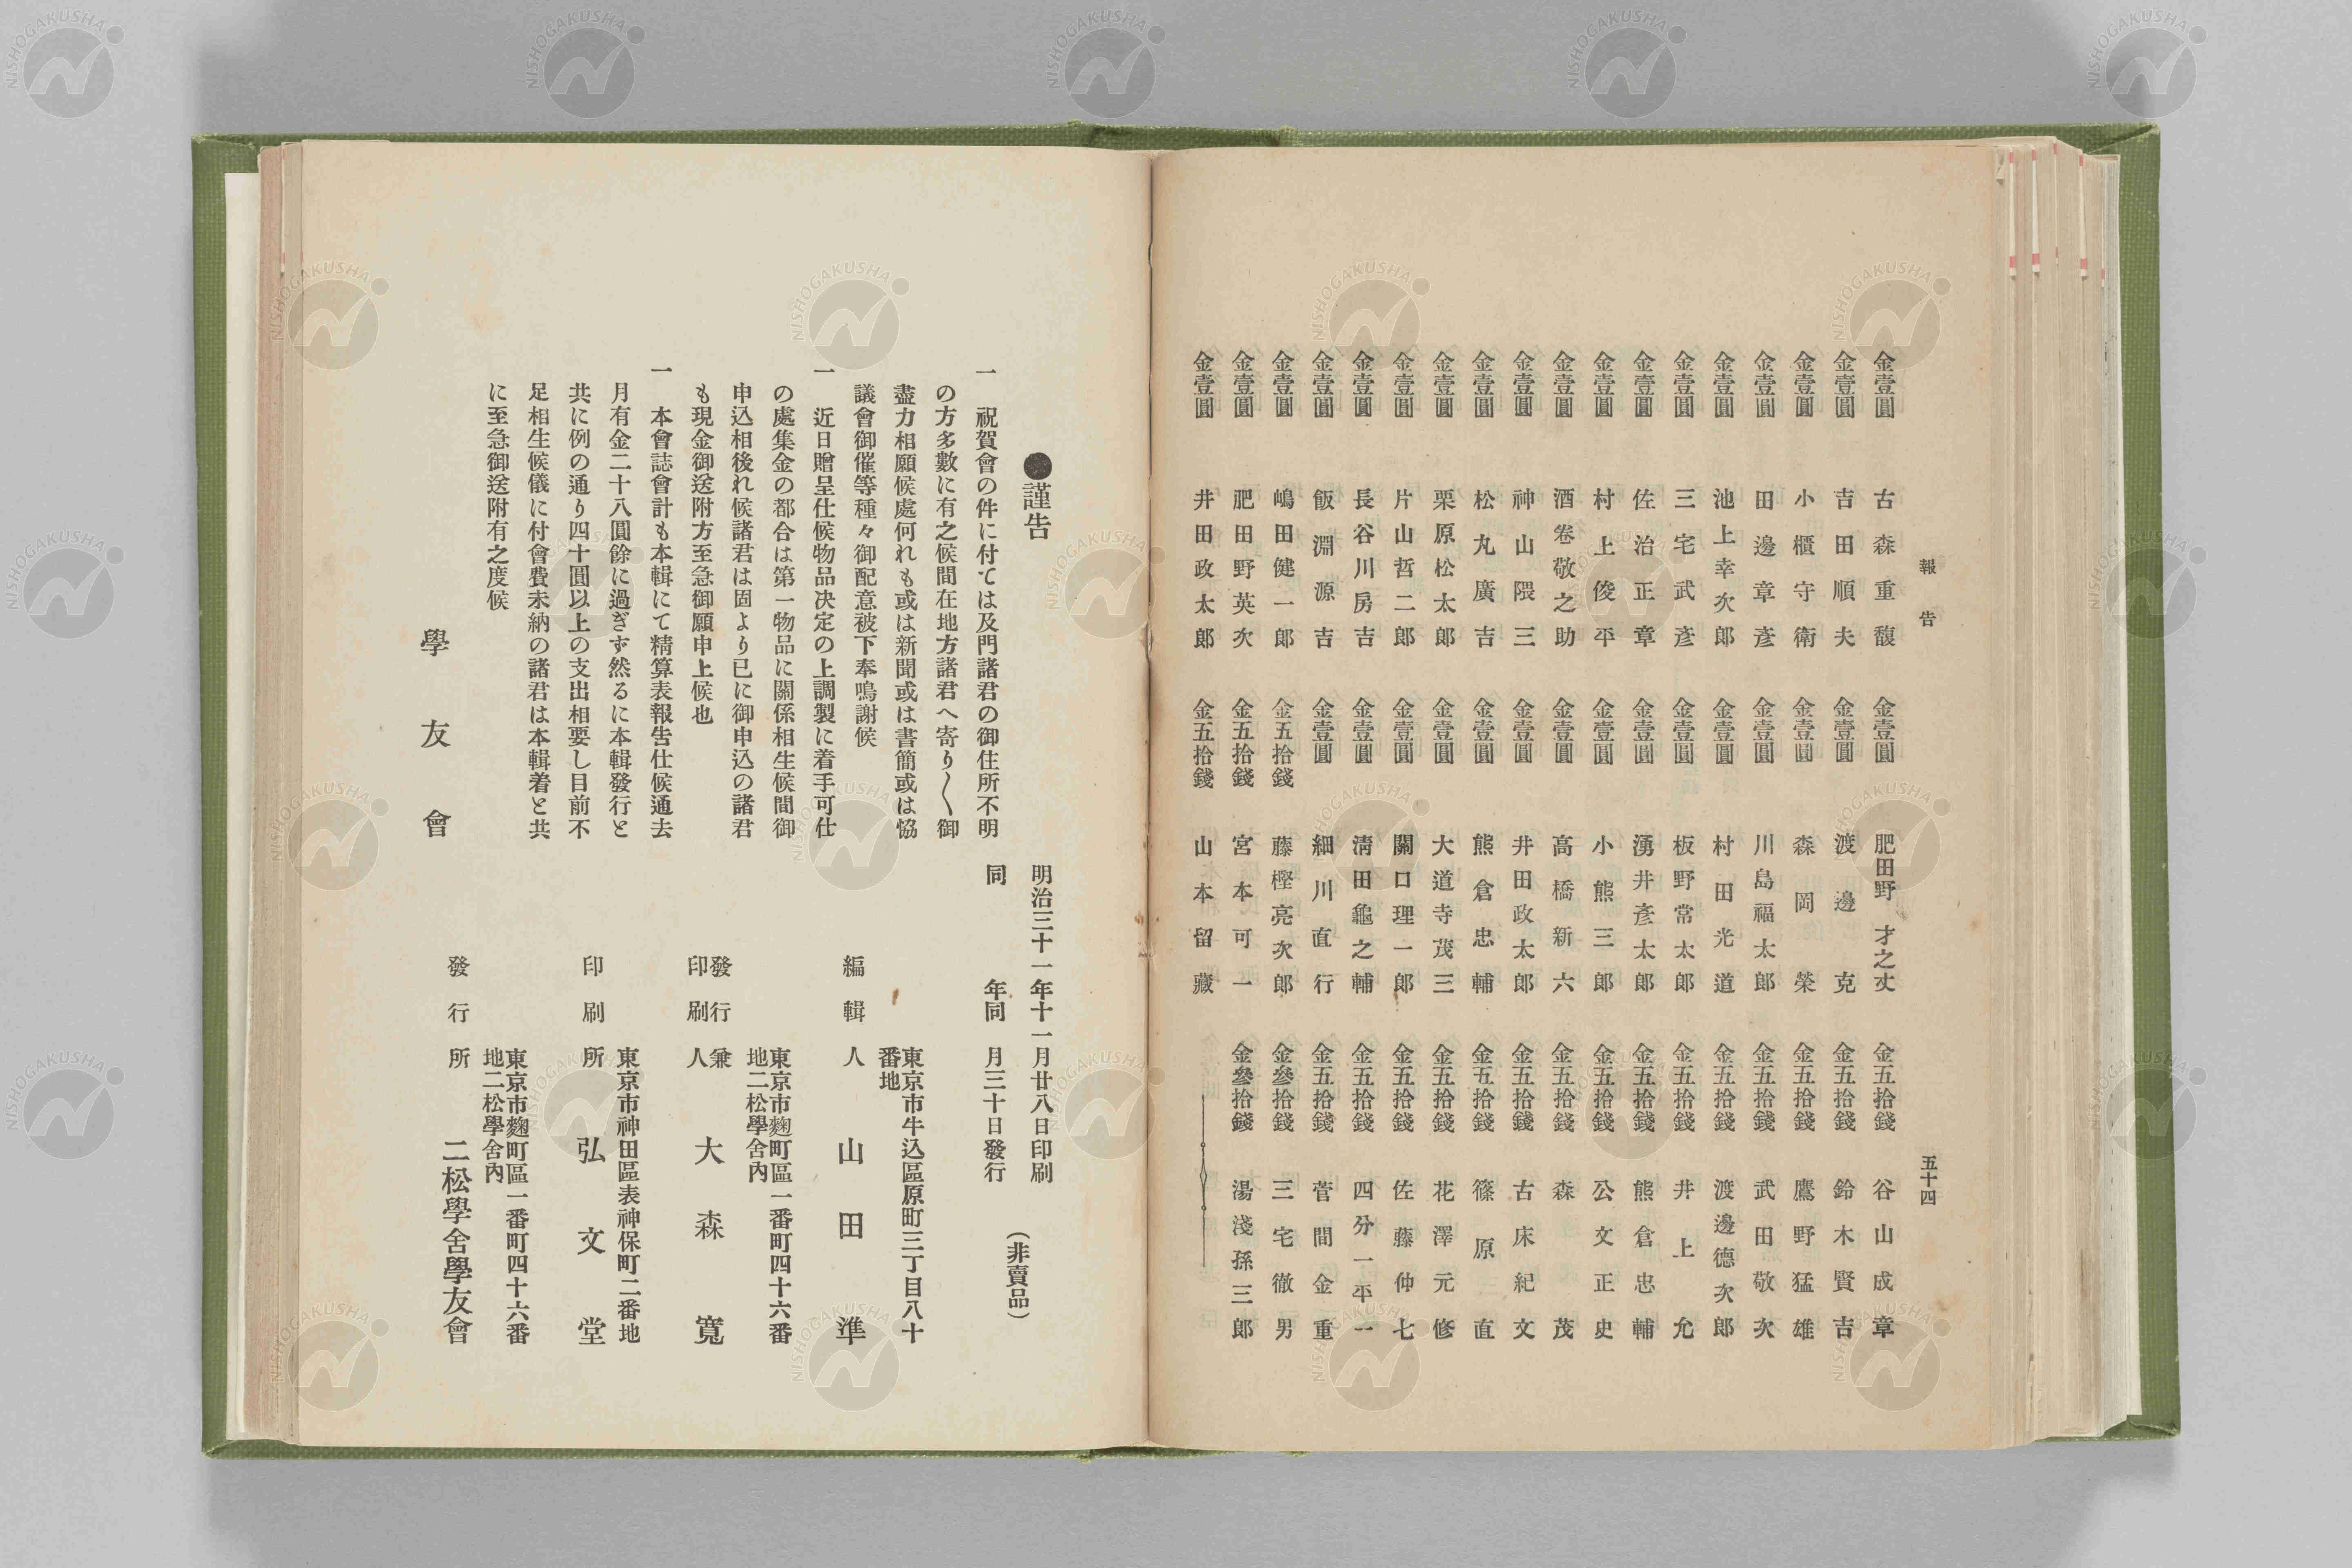 報告
五十四
金壹圓 古森重馥
金壹圓 吉田順夫
金壹圓 小櫃守衛
金壹圓 田邊章彥
金壹圓 池上幸次郎
金壹圓 三宅武彥
金壹圓 佐治正章
金壹圓 村上俊平
金壹圓 酒卷敬之助
金壹圓 神山隈三
金壹圓 松丸廣吉
金壹圓 栗原松太郎
金壹圓 片山哲二郎
金壹圓 長谷川房吉
金壹圓 飯淵源吉
金壹圓 嶋田健一郎
金壹圓 肥田野英次
金壹圓 井田政太郎
金壹圓 肥田野才之丈
金壹圓 渡邊克
金壹圓 森岡榮
金壹圓 川島福太郎
金壹圓 村田光道
金壹圓 板野常太郎
金壹圓 湧井彥太郎
金壹圓 小熊三郎
金壹圓 高橋新六
金壹圓 井田政太郎
金壹圓 熊倉忠輔
金壹圓 大道寺茂三
金壹圓 關口理一郎
金壹圓 淸田龜之輔
金壹圓 細川直行
金五拾錢 藤樫亮次郎
金五拾錢 宮本可一
金五拾錢 山本留藏
金五拾錢 谷山成章
金五拾錢 鈴木賢吉
金五拾錢 鷹野猛雄
金五拾錢 武田敬次
金五拾錢 渡邊德次郎
金五拾錢 井上允
金五拾錢 熊倉忠輔
金五拾錢 公文正史
金五拾錢 森茂
金五拾錢 古床紀文
金五拾錢 篠原直
金五拾錢 花澤元修
金五拾錢 佐藤仲七
金五拾錢 四分一平一
金五拾錢 菅間金重
金參拾錢 三宅徹男
金參拾錢 湯淺孫三郎
●謹告
一 祝賀會の件に付ては及門諸君の御住所不明
の方多數に有之候間在地方諸君へ寄り〱御
盡力相願候處何れも或は新聞或は書簡或は恊
議會御催等種々御配意被下奉鳴謝候
一 近日贈呈仕候物品决定の上調製に着手可仕
の處集金の都合は第一物品に關係相生候間御
申込相後れ候諸君は固より已に御申込の諸君
も現金御送附方至急御願申上候也
一 本會誌會計も本輯にて精算表報告仕候通去
月有金二十八圓餘に過ぎず然るに本輯發行と
共に例の通り四十圓以上の支出相要し目前不
足相生候儀に付會費未納の諸君は本輯着と共
に至急御送附有之度候
學友會
明治三十一年十一月廿八日印刷
同年同月三十日發行
(非賣品)
東京市牛込區原町三丁目八十
番地
編輯人 山田準
東京市麹町區一番町四十六番
地二松學舍內
發行兼
印刷人 大森寬
東京市神田區表神保町二番地
印刷所 弘文堂
東京市麹町區一番町四十六番
地二松學舍內
發行所 二松學舍學友會
NISHOGAKUSHA